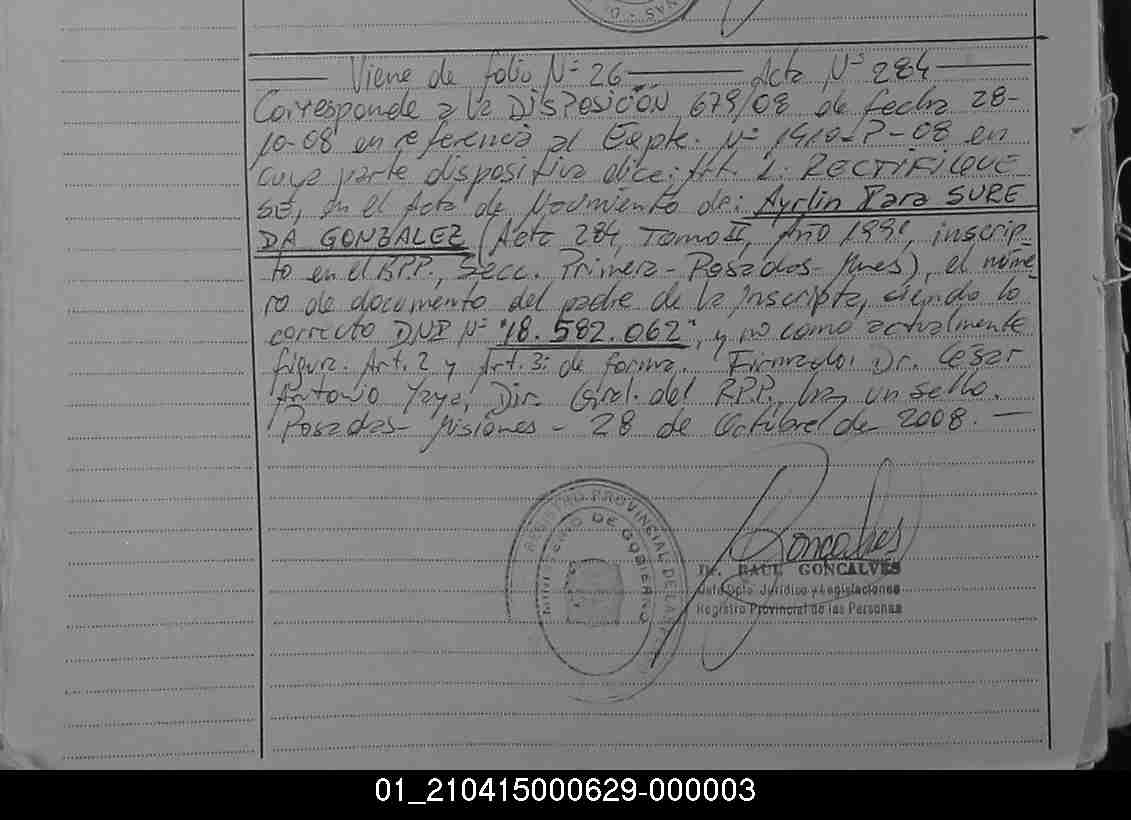 Viene de folio Nº 26 Acta Nº 284
Corresponde a la DISPOSICIÓN 679/08 de fecha 28-
10-08 en referencia al Expte. Nº 1910-P-08 en
cuya parte dispositiva dice: Art. 1. RECTIFIQUE
SE, en el Acta de Nacimiento de: Ayrlin Yara SURE
DA GONZALEZ (Acta 284, Tomo II, Año 1991, inscrip-
to en el RPP., Secc. Primera - Posadas - Mnes), el núme-
ro de documento del padre de la inscripta, siendo lo
correcto DNI Nº "18.582.062", y no como actualmente
figura. Art. 2 y Art. 3: de forma. Firmado: Dr. Cesar
Antonio Yaya, Dir. Gral. del RPP., hay un sello.
Posadas - Misiones - 28 de Octubre de 2008.
REGISTRO PROVINCIAL DE LAS
MINISTERIO DE GOBIERNO
Goncalves
Dr. RAUL GONCALVES
Jefe Dpto. Jurídico y Legislaciones
Registro Provincial de las Personas
01_210415000629-000003